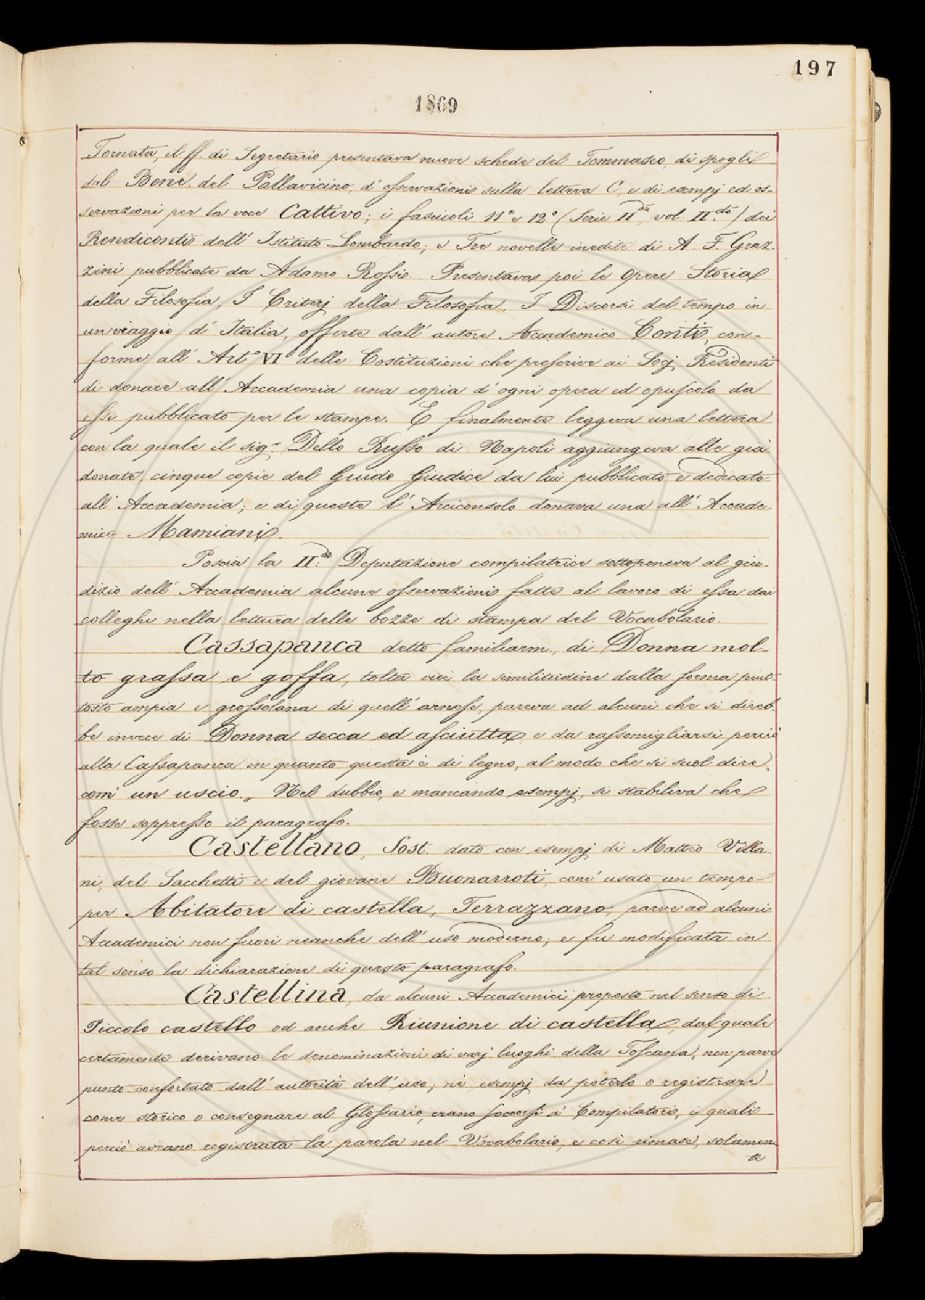 197
1869
Tornata, il ff. di Segretario presentava nuove schede del Tommaseo, di spogli
del Bene, del Pallavicino, d'osservazioni sulla lettera C, e di esempj ed os-
servazioni per la voce Cattivo; i fascicoli 11° e 12° (Serie IIda, vol. IIdo) dei
Rendiconti dell'Istituto Lombardo; e Tre novelle inedite di A. F. Graz-
zini pubblicate da Adamo Rossi. Presentava poi le Opere Storia
della Filosofia, I Criterj della Filosofia, I Discorsi del tempo in
un viaggio d'Italia, offerte dall'autore Accademico Conti, con-
forme all'Art° VI delle Costituzioni che prescrive ai Socj Residenti
di donare all'Accademia una copia d'ogni opera ed opuscolo da
essi pubblicato per le stampe. E finalmente leggeva una lettera
con la quale il sigr. Dello Russo di Napoli aggiungeva alle già
donate, cinque copie del Guido Giudice da lui pubblicato e dedicato
all'Accademia; e di queste l'Arciconsolo donava una all'Accade-
mico Mamiani.
Poscia la IIda Deputazione compilatrice sottoponeva al giu-
dizio dell'Accademia alcune osservazioni fatte al lavoro di essa dai
colleghi nella lettura delle bozze di stampa del Vocabolario.
Cassapanca detto familiarm. di Donna mol-
to grassa e goffa, tolta ivi la similitudine dalla forma piut-
tosto ampia e grossolana di quell'arnese, pareva ad alcuni che si direb-
be invece di Donna secca ed asciutta, e da rassomigliarsi perciò
alla Cassapanca in quanto questa è di legno, al modo che si suol dire
com' un uscio. Nel dubbio, e mancando esempj, si stabiliva che
fosse soppresso il paragrafo.
Castellano, Sost. dato con esempj di Matteo Villa-
ni, del Sacchetti e del giovane Buonarroti, com'usato un tempo
per Abitatore di castella, Terrazzano, parve ad alcuni
Accademici non fuori neanche dell'uso moderno; e fu modificata in
tal senso la dichiarazione di questo paragrafo.
Castellina, da alcuni Accademici proposto nel senso di
Piccolo castello ed anche Riunione di castella, dal quale
certamente derivano le denominazioni di varj luoghi della Toscana, non parve
punto confortato dall'autorità dell'uso; nè esempj da poterlo o registrare
come storico o consegnare al Glossario, erano soccorsi a' Compilatori, i quali
perciò avevano registrata la parola nel Vocabolario, e così rimase, solamen-
te